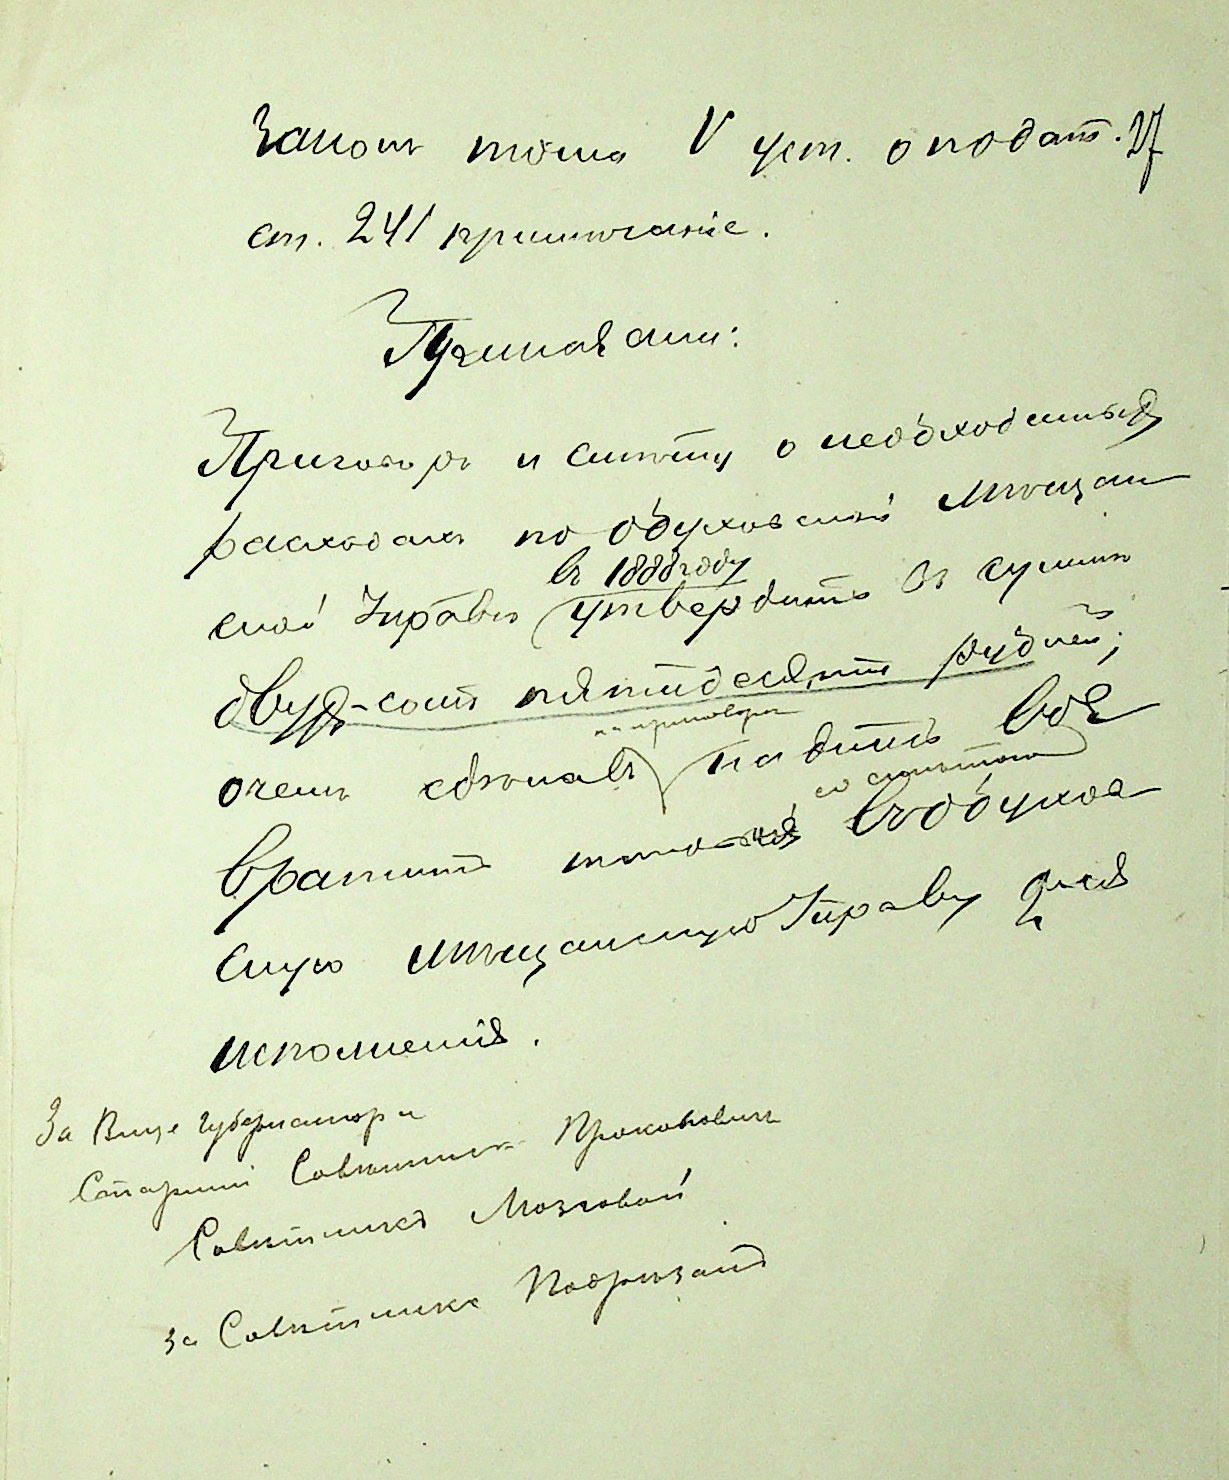 Законъ тома V уст. о подат.
ст. 241 примѣчаніе.
Приказали:
Приговоръ и смѣту о необходимыхъ
расходахъ по Обуховской мѣщан
ской Управѣ
въ 1888 году
утвердить въ суммѣ
двухъ-сотъ пятидесяти рублей;
о чемъ сдѣлавъ
на приговорѣ
надпись воз
вратить
со смѣтою
въ Обухов
скую мѣщанскую Управу для
исполненія.
За Вице Губернатора
Старшій Совѣтникъ Прокоповичъ
Совѣтникъ Мозговой
за Совѣтника Подрѣзанъ